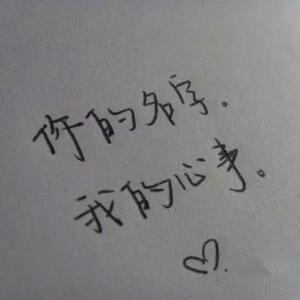 你的名字.
我的心事。